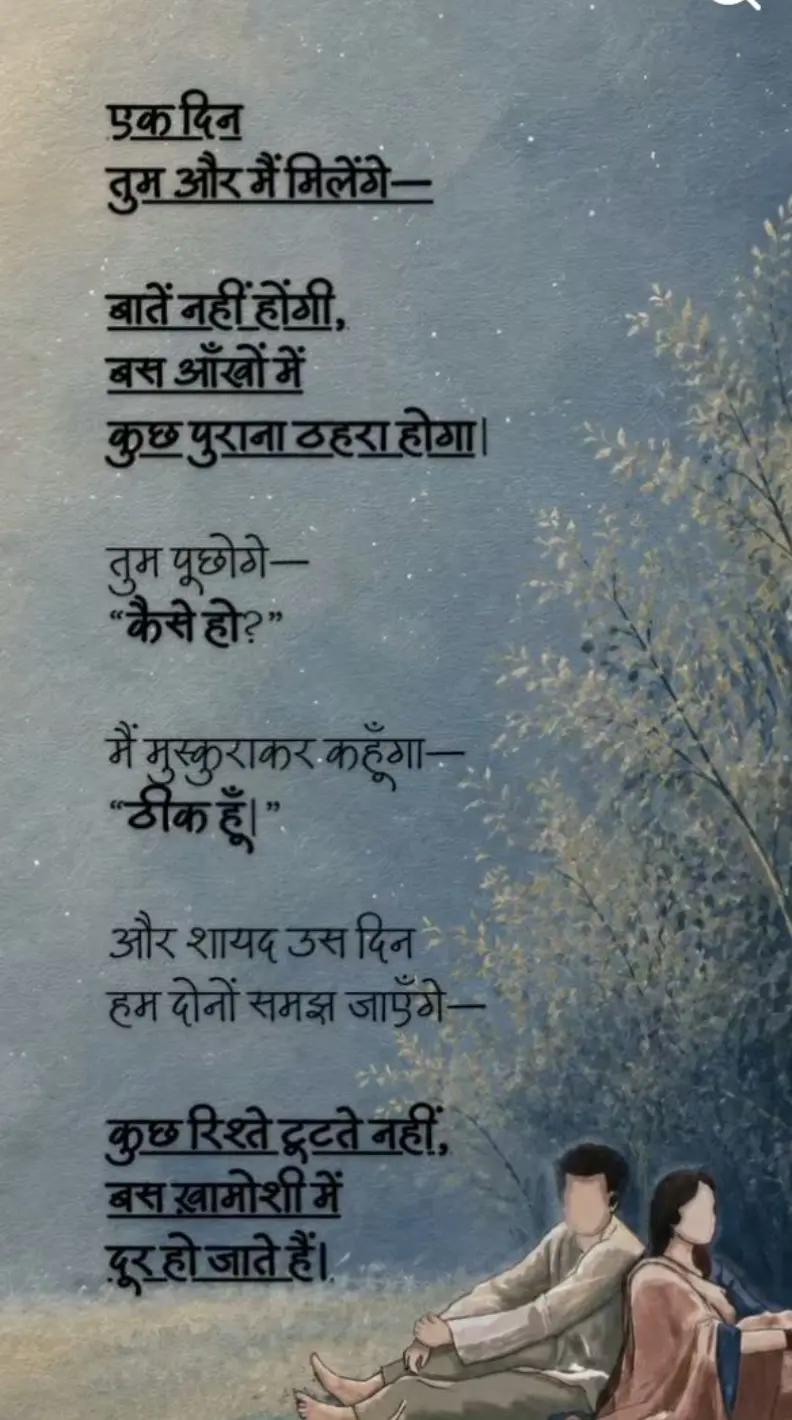 एक दिन
तुम और मैं मिलेंगे—
बातें नहीं होंगी,
बस आँखों में
कुछ पुराना ठहरा होगा|
तुम पूछोगे—
“कैसे हो?”
मैं मुस्कुराकर कहूँगा—
“ठीक हूँ|”
और शायद उस दिन
हम दोनों समझ जाएँगे—
कुछ रिश्ते टूटते नहीं,
बस ख़ामोशी में
दूर हो जाते हैं|